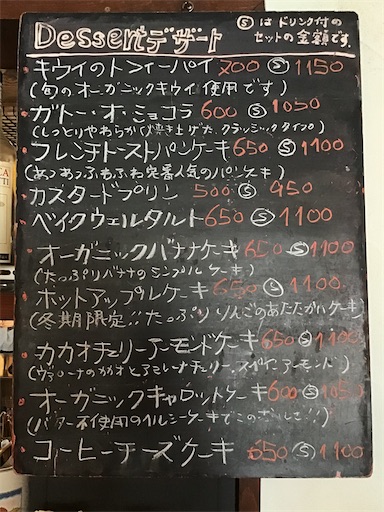 Dessertデザート
Ⓢはドリンク付の
セットの金額です。
キウイのトフィーパイ 700 Ⓢ 1150
(旬のオーガニックキウイ使用です)
ガトー・オ・ショコラ 600 Ⓢ 1050
(しっとりやわらかく焼き上げた クラッシックタイプ)
フレンチトーストパンケーキ 650 Ⓢ 1100
(あつあつふわふわ定番人気のパンケーキ)
カスタードプリン 500 Ⓢ 950
ベイクウェルタルト 650 Ⓢ 1100
オーガニックバナナケーキ 650 Ⓢ 1100
(たっぷりバナナのシンプルケーキ)
ホットアップルケーキ 650 Ⓢ 1100
(冬期限定!! たっぷりりんごのあたたかいケーキ)
カカオチェリーアーモンドケーキ 650 Ⓢ 1100
(ヴァローナのカカオとアメレナチェリー、スペインアーモンド)
オーガニックキャロットケーキ 600 Ⓢ 1050
(バター不使用のヘルシーケーキでこのボリューム!!)
コーヒーチーズケーキ 650 Ⓢ 1100